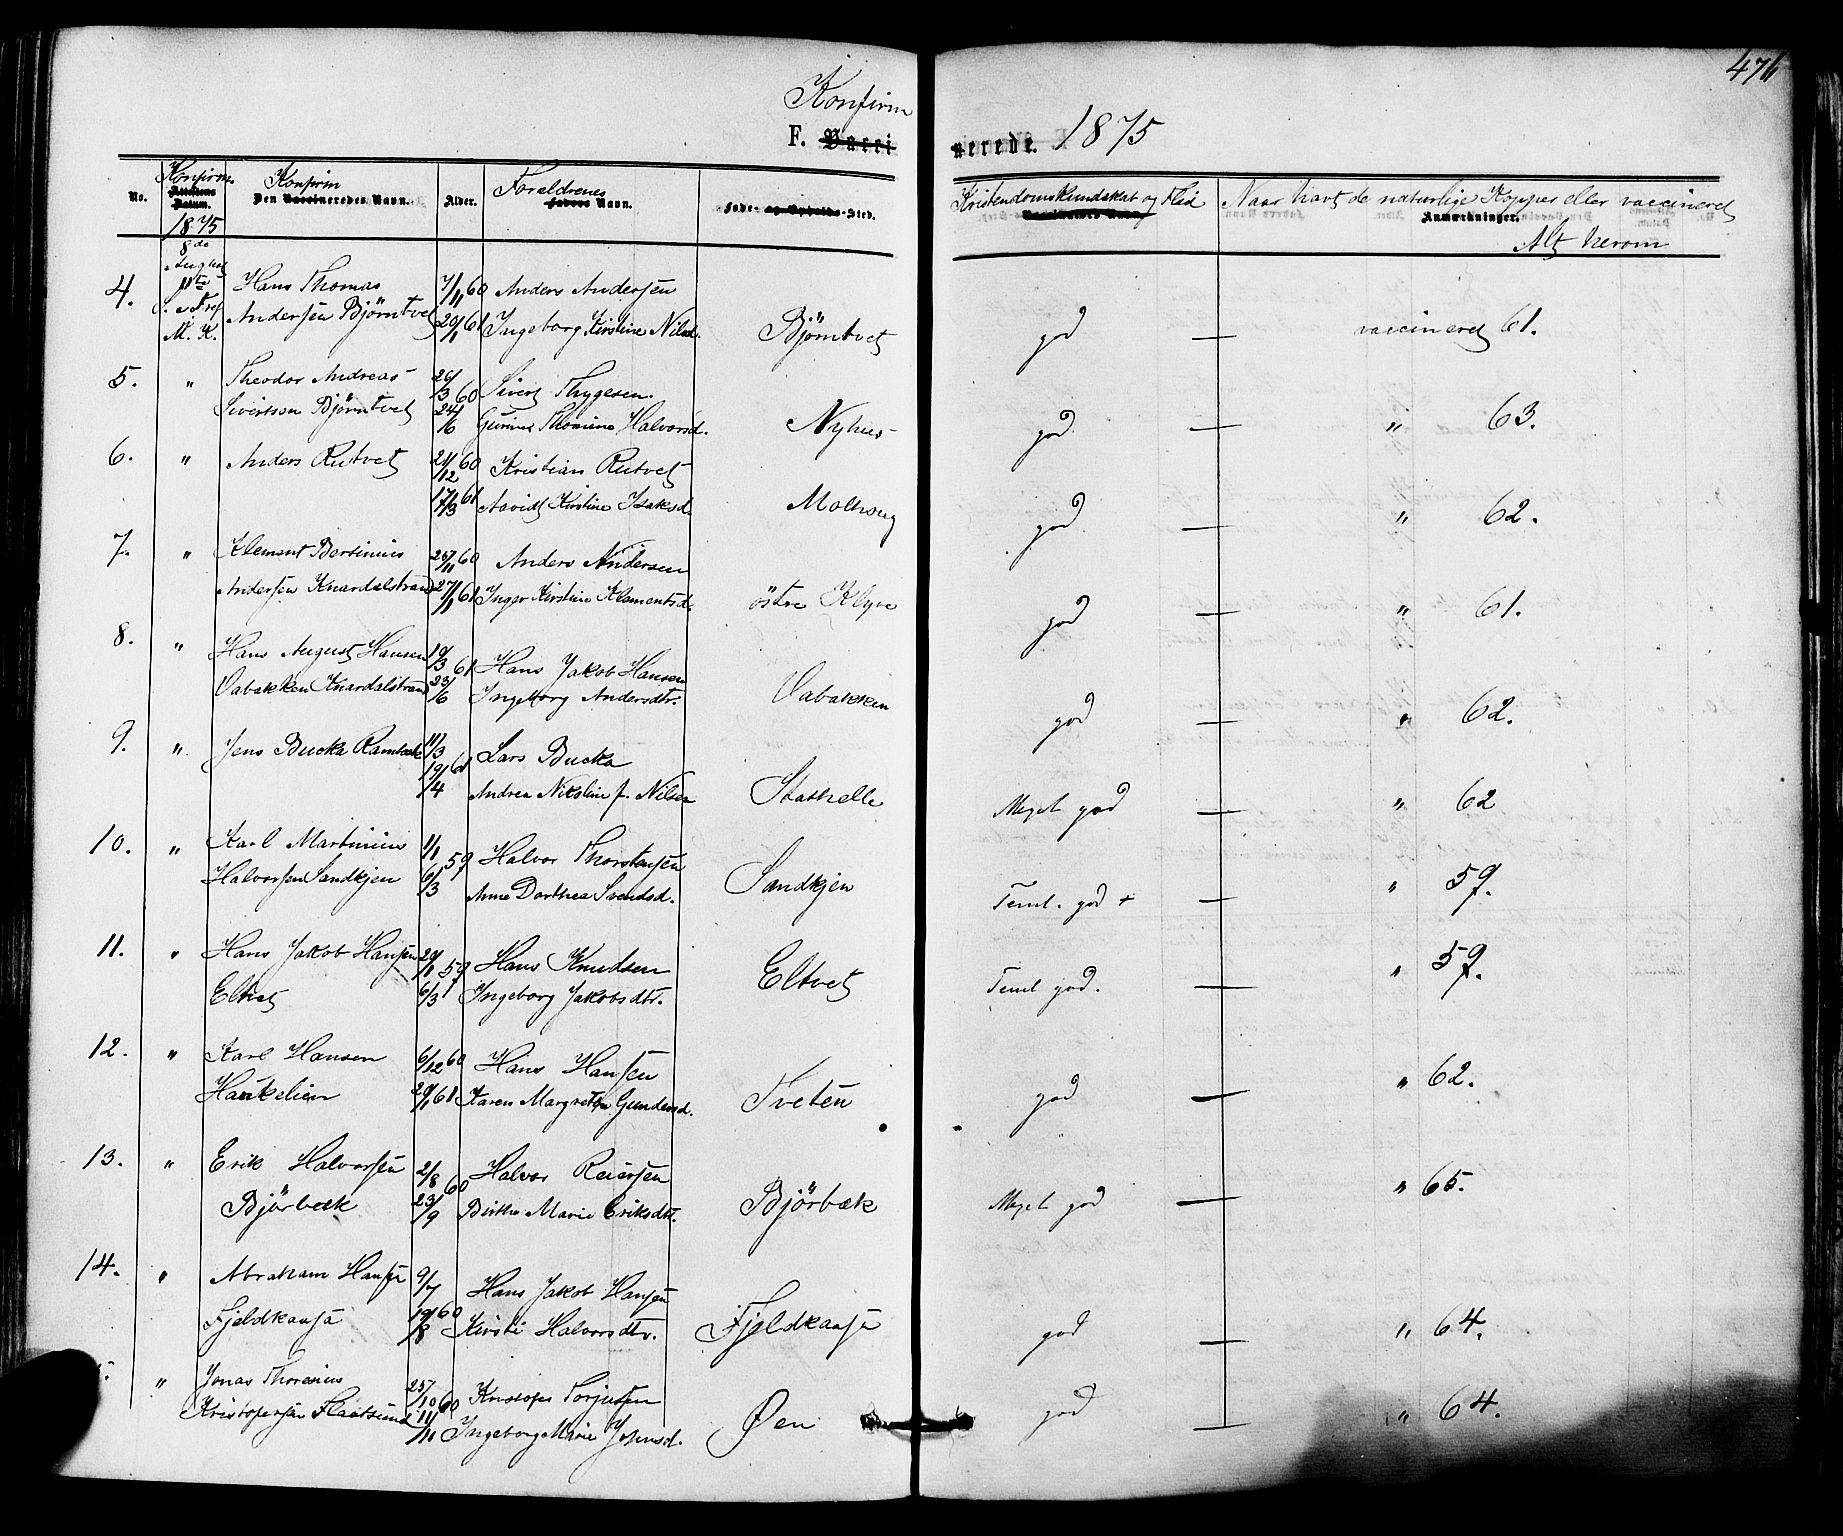 476
Konfirm
F. Vacci nerede. 1875
No.
Konfirm. Attestens Datum.
Konfirm
Den Vaccineredes Navn.
Alder.
Forældrenes
Faders Navn.
Føde- og Opholds-Sted.
Kristendomskundskab og Flid
Naar havt de naturlige Kopper eller vaccineret
Anmærkninger.
Alt herom
1875
8de
August
11te
S. e. Tref.
M. K.
4. Hans Thomas 7/11 60 Anders Andersen
Andersen Bjørntvet 20/1 61 Ingeborg Kirstine Nilsd. Bjørntvet god — vaccineret 61.
5. " Theodor Andreas 26/3 60 Sivert Thygesen.
Sivertsen Bjørntvet 24/6 Gurine Thomine Halvorsd. Nyhus god — " 63.
6. " Anders Rutvet 21/12 60 Kristian Rutvet
17/3 61 Kirstine Isaksd. god — " 62.
7. " Klement Bertinius 25/11 60 Anders Andersen
Andersen Knardalstrand 27/1 61 Inger Kirstine Klementsd. östre Klyve god — " 61.
8. " Hans August Hansen 19/3 61 Hans Jakob Hansen
Vabakken Knardalstrand 23/6 Ingeborg Andersdtr. Vabakken god — " 62.
9. " Jens Bucka 11/3 61 Lars Bucka
19/4 Andrea Nikoline f. Nilsen Stathelle Meget god — " 62
10. " Karl Martinius 1/1 59 Halvor Thorstensen
Halvorsen Sandkjen 6/3 Anne Dorthea Svendsd. Sandkjen Teml. god + — " 59.
11. " Hans Jakob Hansen 20/1 59 Hans Knudsen
Eltvet 6/3 Ingeborg Jakobsdtr. Eltvet Teml god. — " 59.
12. " Karl Hansen 6/12 60 Hans Hansen
Haukelien 29/1 61 Karen Margrethe Gundersd. Tveten god — " 62.
13. " Erik Halvorsen 2/8 60 Halvor Reiersen
Bjørbæk 23/9 Birthe Marie Eriksdtr. Bjørbæk Meget god — " 65.
14. " Abraham Hansen 9/7 60 Hans Jakob Hansen
Fjeldkaasa 19/8 Kirsti Halvorsdtr. Fjeldkaasa god — " 64.
" Jonas Thorenius 25/10 60 Kristofer Torjusen
Kristofersen Flaatsund 11/11 Ingeborg Marie Jonsd. Øen god — " 64.